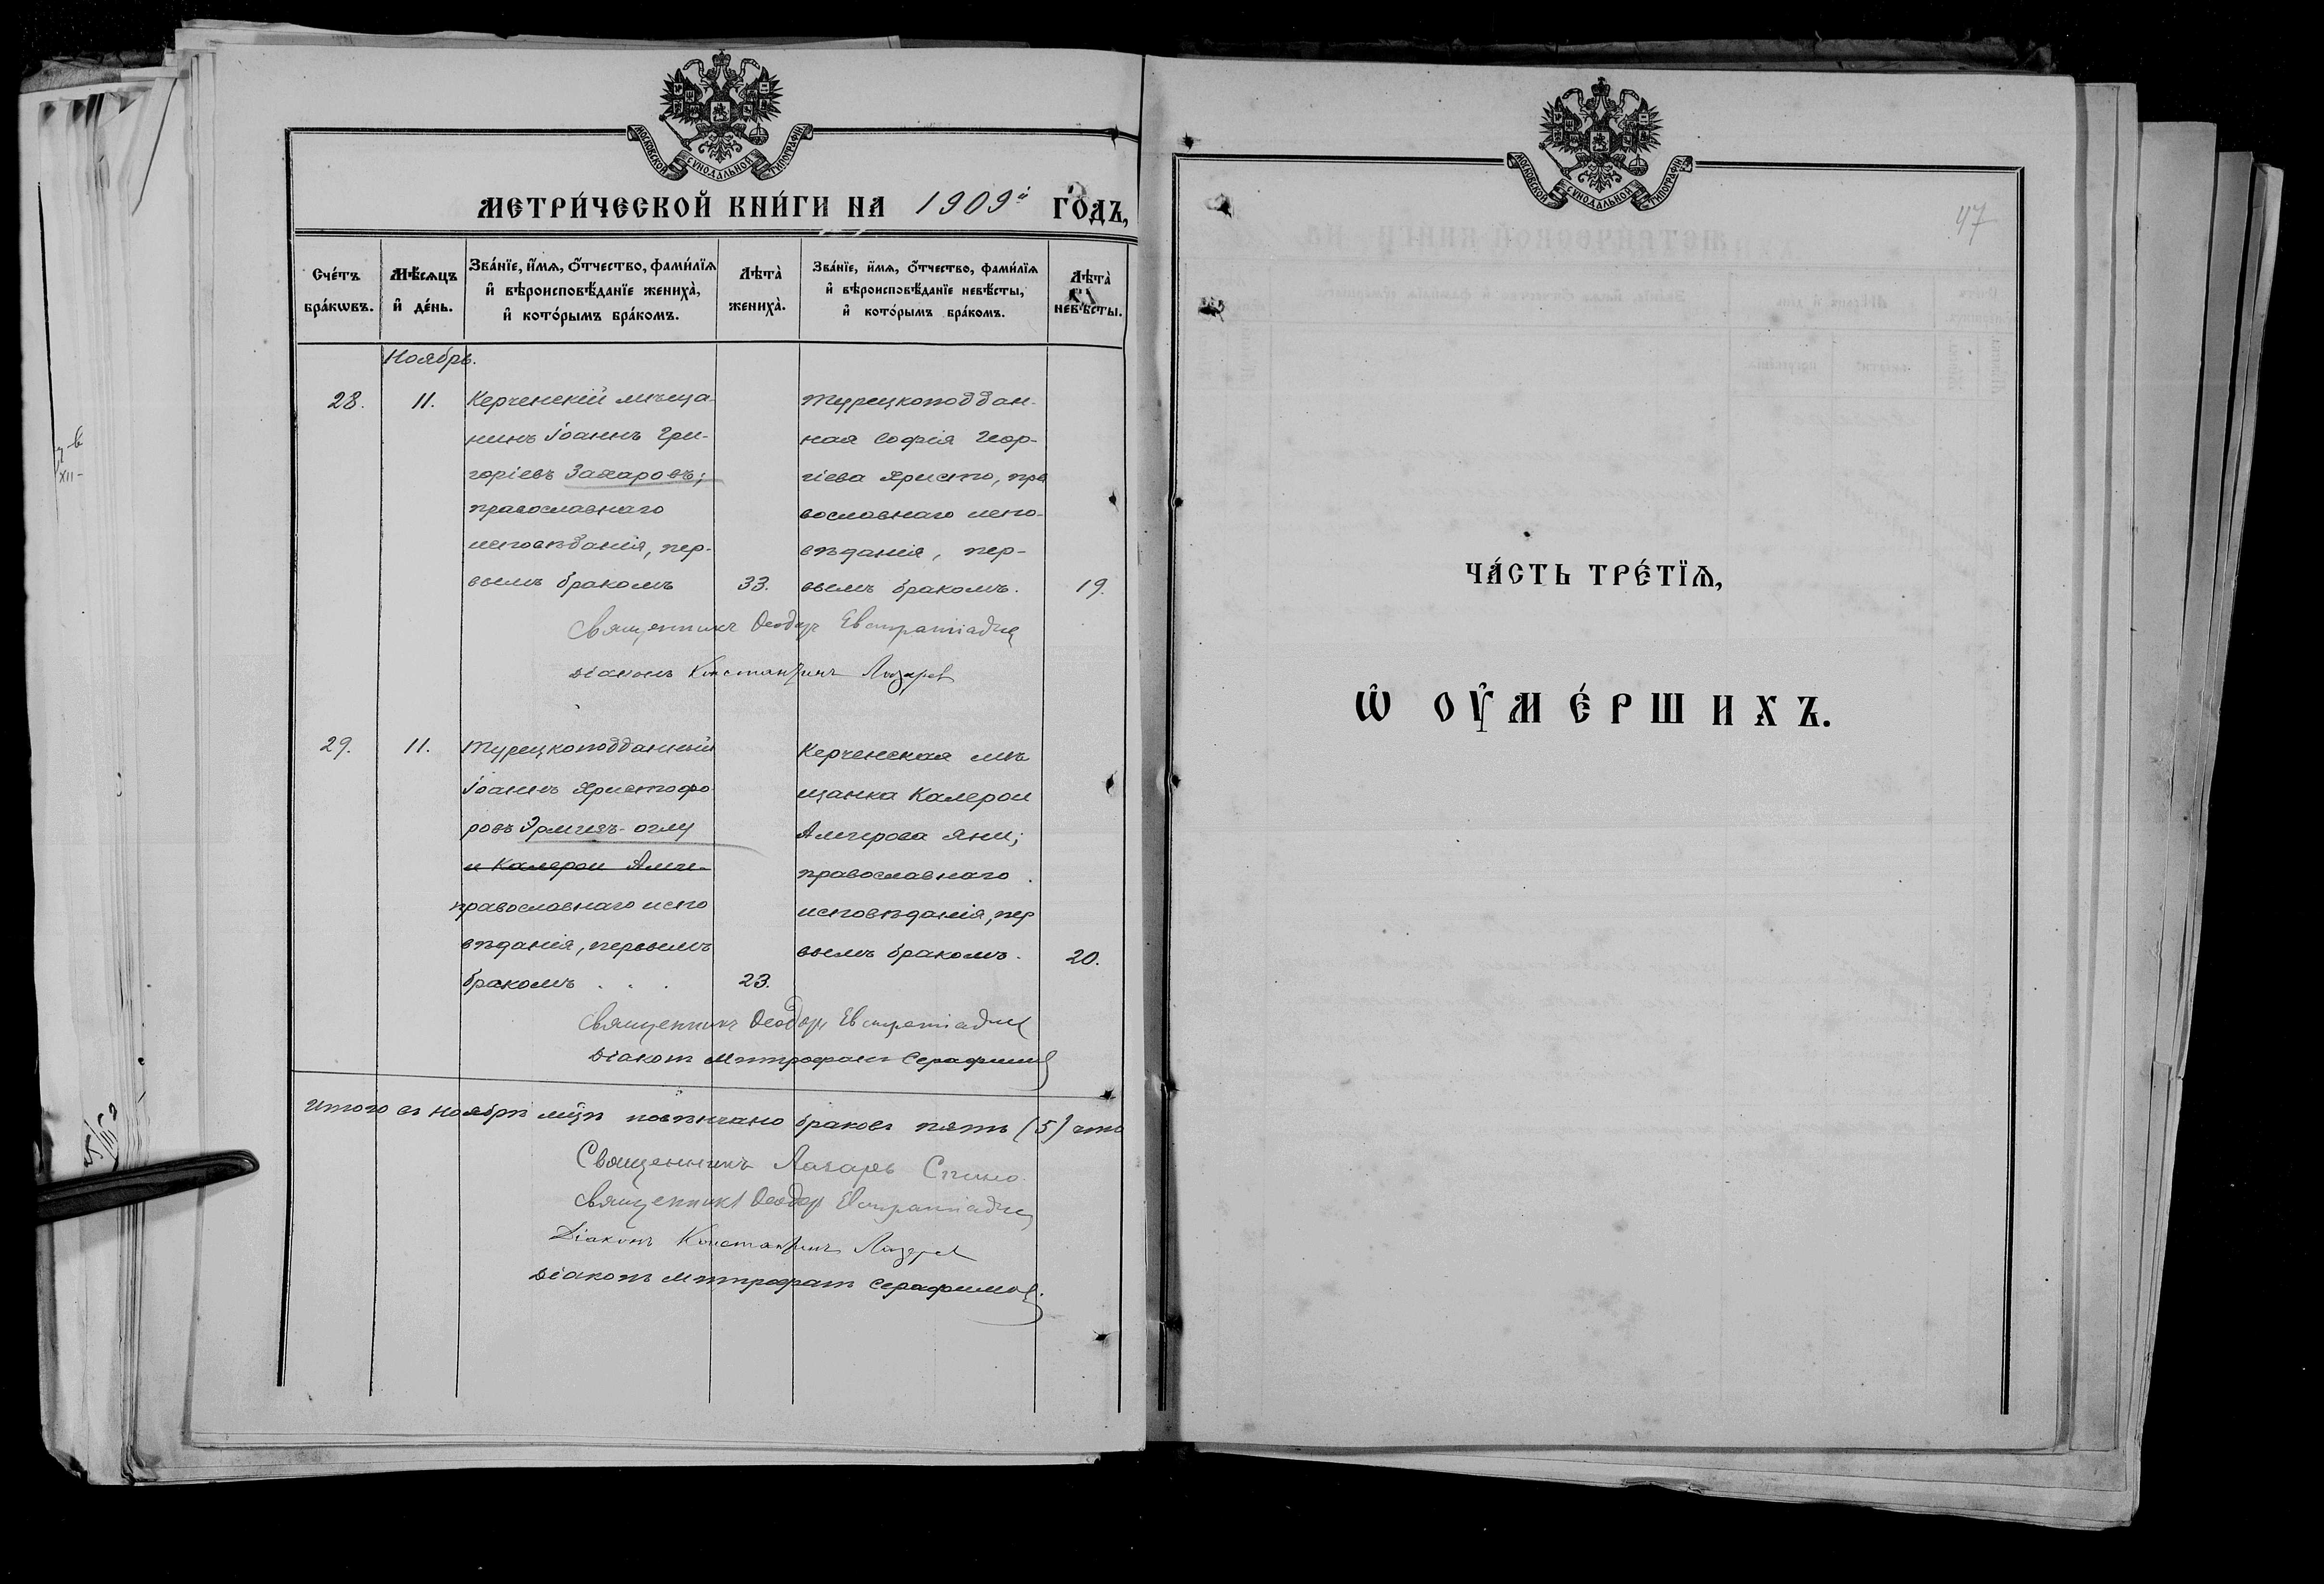 МОСКОВСКОЙ СУНОДАЛЬНОЙ ТИПОГРАФІИ
МЕТРИ́ЧЕСКОЙ КНИ́ГИ НА 1909й ГО́ДЪ,
Сче́тъ бра́кωвъ.
Мѣ́сѧцъ и҆ де́нь.
Зва́нїе, и҆́мѧ, ѻ҆́тчество, фами́лїѧ и҆ вѣроисповѣ́данїе жениха̀, и҆ кото́рымъ бра́комъ.
Лѣта̀ жениха̀.
Зва́нїе, и҆́мѧ, ѻ҆́тчество, фами́лїѧ и҆ вѣроисповѣ́данїе невѣ́сты, и҆ кото́рымъ бра́комъ.
Лѣта̀ невѣ́сты.
Ноябрь.
28. 11.
Керченскій мѣща-
нинъ Іоаннъ Гри-
горіевъ Захаровъ;
православнаго
исповѣданія, пер-
вымъ бракомъ 33.
Турецкоподдан-
ная Софія Геор-
гіева Христо, пра
вославнаго испо-
вѣданія, пер-
вымъ бракомъ. 19.
Священникъ Ѳеодоръ Евстратіадис
Діаконъ Константинъ Лазарев
29. 11.
Турецкоподданный
Іоаннъ Христофо
ровъ Эрмизъ-оглу
и Калерои Амги-
православнаго испо
вѣданія, первымъ
бракомъ . . . 23.
Керченская мѣ
щанка Калерои
Амгирова Яни;
православнаго
исповѣданія, пер
вымъ бракомъ. 20.
Священникъ Ѳеодоръ Евстратіадис
Діаконъ Митрофанъ Серафимов
Итого въ ноябрѣ мцѣ повѣнчано браковъ пять (5) что
Священникъ Лазарь Спино.
Священникъ Ѳеодоръ Евстратіадис
Діаконъ Константинъ Лазарев
Діаконъ Митрофанъ Серафимов.
МОСКОВСКОЙ СУНОДАЛЬНОЙ ТИПОГРАФІИ
47
ЧА́СТЬ ТРЕ́ТЇѦ,
Ѡ҆ ОУ҆МЕ́РШИХЪ.